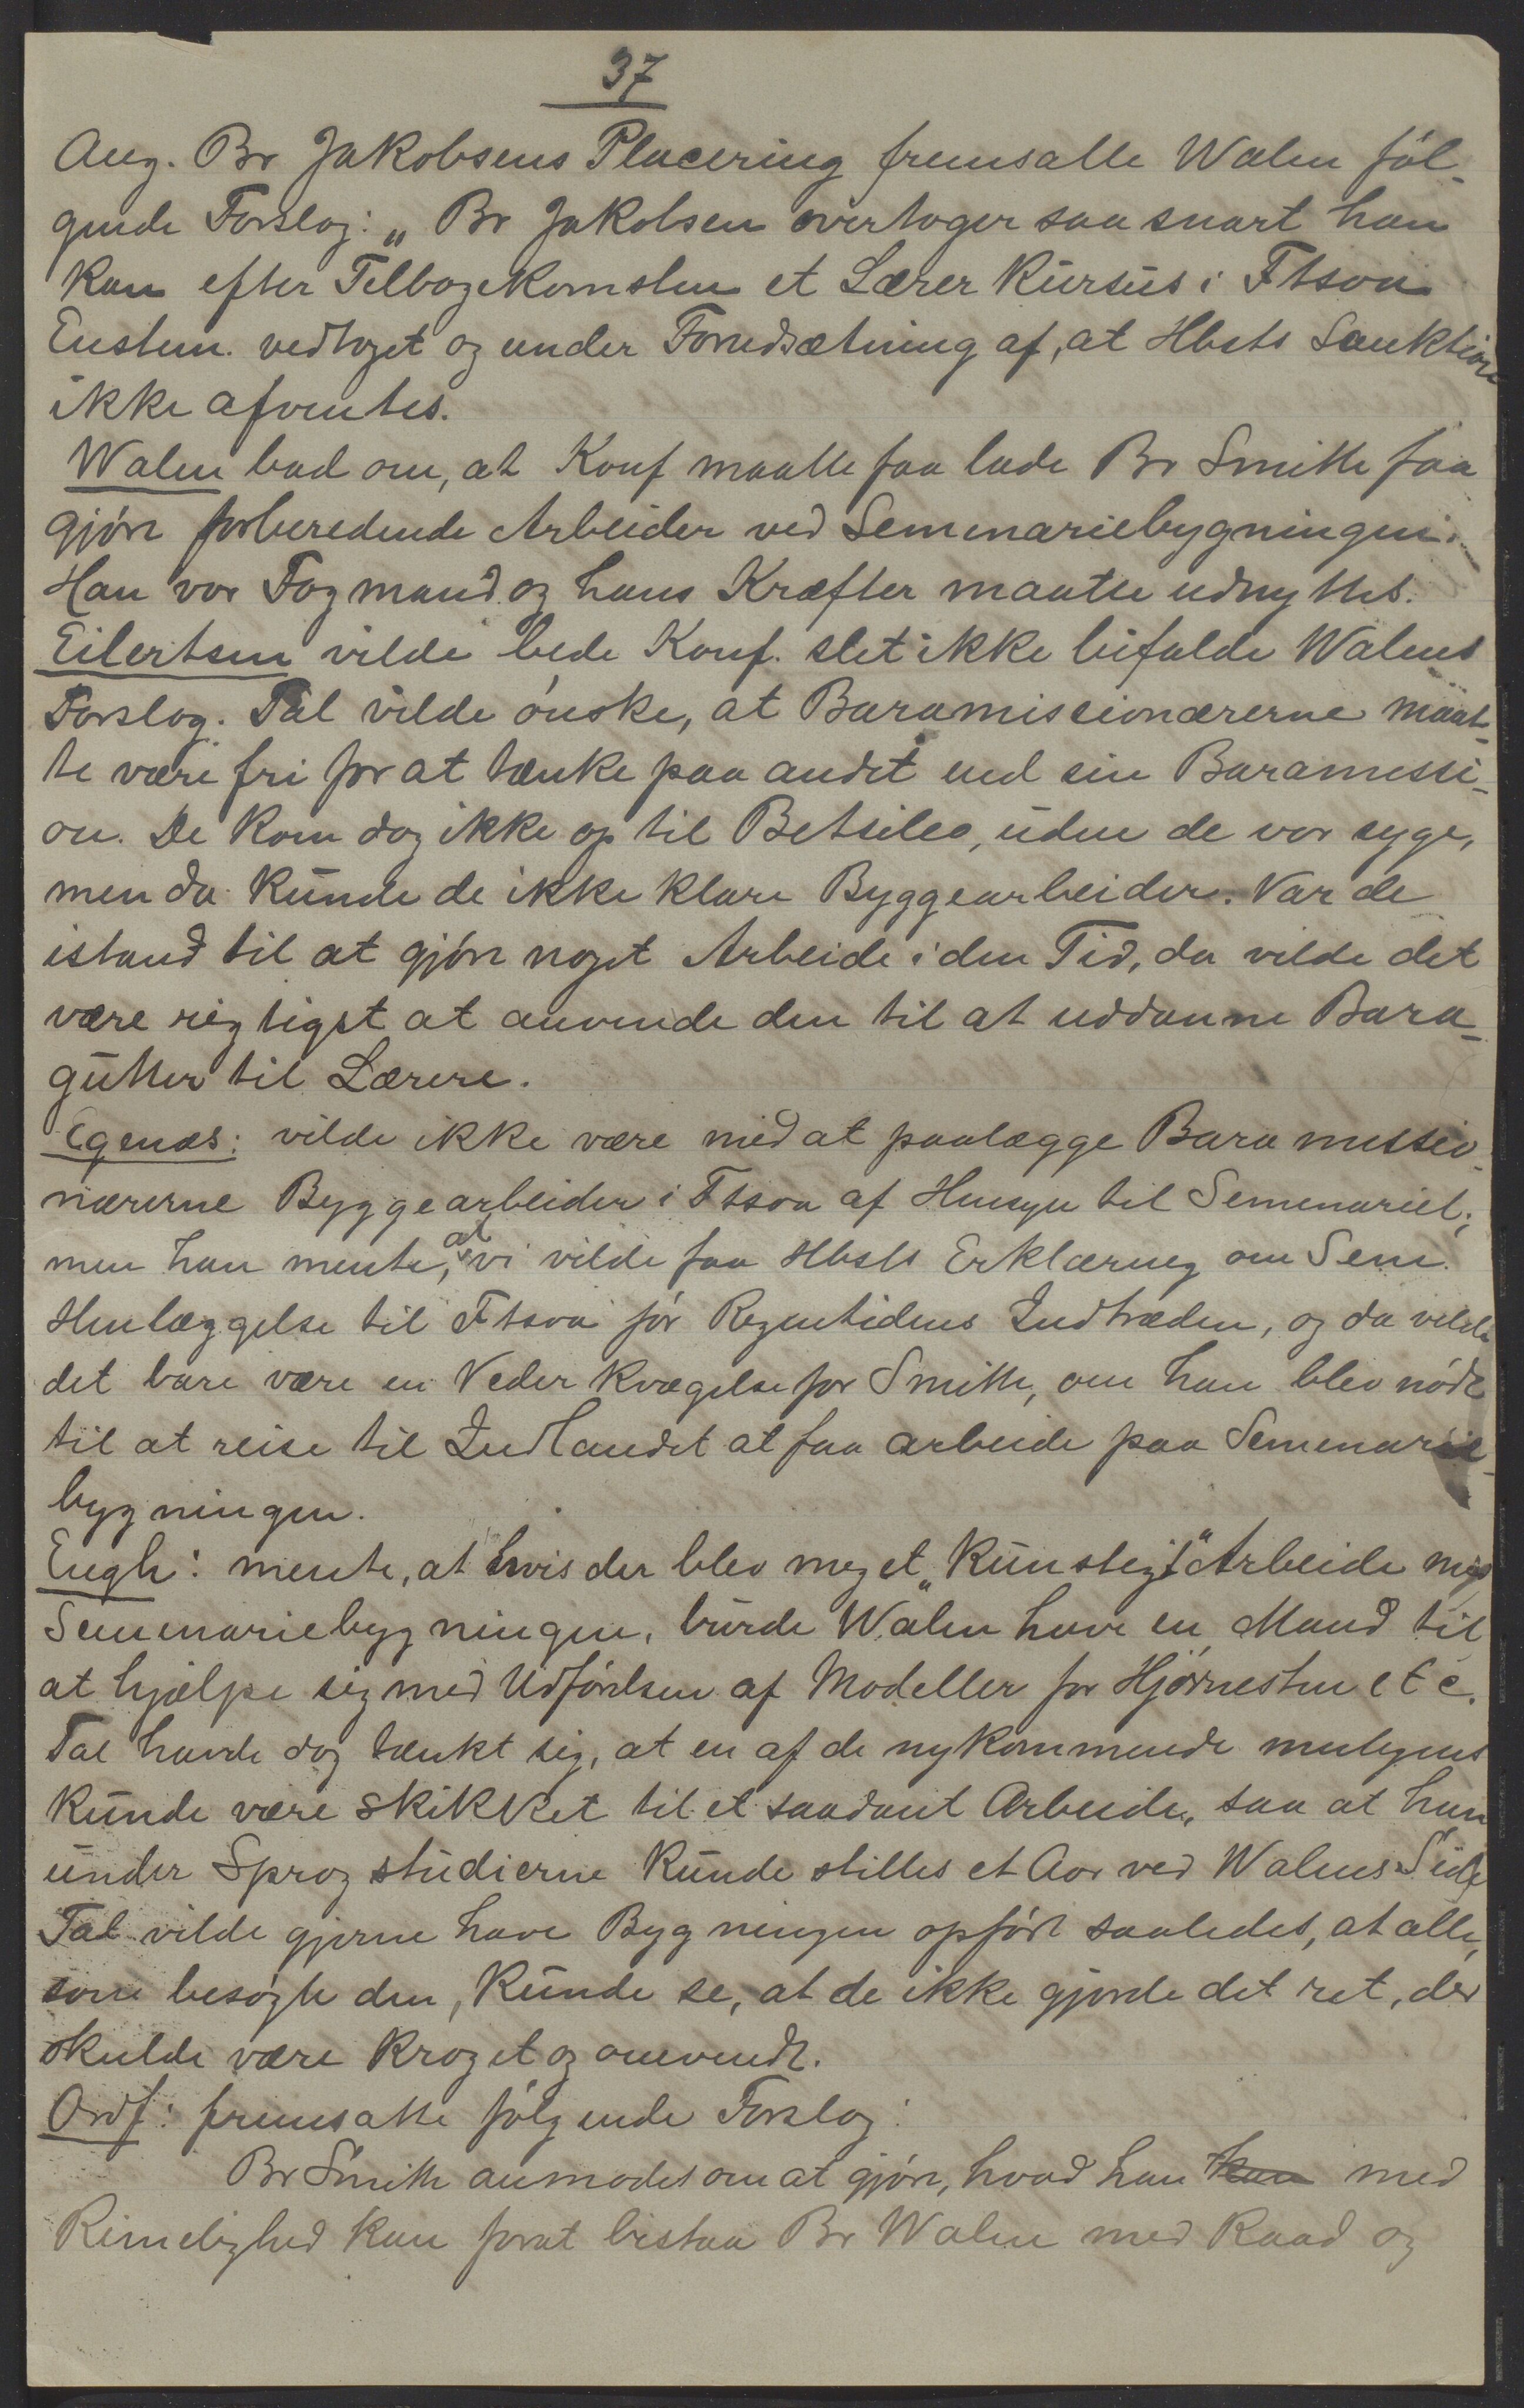 37
Ang. Br Jakobsens Placering fremsatte Walen føl-
gende Forslag: „Br Jakobsen overtager saa snart han
kan efter Tilbagekomsten et Lærer Kursus i Ftsoa
Enstem. vedtaget og under Forudsætning af, at Hbsts Sanktion
ikke afventes.
Walen bad om, at Konf maatte faa lade Br Smitte faa
gjøre forberedende Arbeider ved Seminariebygningen.
Han var Fagmand og hans Kræfter maatte udnyttes.
Eilertsen vilde bede Konf. slet ikke bifalde Walens
Forslag. Tal vilde ønske, at Baramissionærerne maat-
te være fri for at tænke paa andet end sin Baramissi-
on. De kom dog ikke op til Betsileo, uden de var syge,
men da kunde de ikke klare Byggearbeider. Var de
istand til at gjøre noget Arbeide i den Tid, da vilde det
være rigtigst at anvende den til at uddanne Bara-
gutter til Lærere.
Egenæs: vilde ikke være med at paalægge Bara missio-
nærerne Byggearbeider i Ftsoa af Hensyn til Seminariet;
men han mente, at vi vilde faa Hbsts Erklæring om Sem.
Henlæggelse til Ftsoa før Regntidens Indtræden, og da vilde
det bare være en Vederkvægelse for Smitte, om han blev nødt
til at reise til Indlandet at faa arbeide paa Seminarie-
bygningen.
Engh: mente, at hvis der blev meget „Kunstigt" Arbeide med
Seminariebygningen, burde Walen have en Mand til
at hjælpe sig med Udførelsen af Modeller for Hjørnesten etc.
Tal havde dog tænkt sig, at en af de nykommende muligens
kunde være skikket til et saadant Arbeide, saa at han
under Sprogstudierne kunde stilles et Aar ved Walens Side
Tal vilde gjerne have Bygningen opført saaledes, at alle,
som besøgte den, kunde se, at de ikke gjorde det ret, der
skulde være kroget og omvendt.
Ordf: fremsatte følgende Forslag:
Br Smitte anmodes om at gjøre, hvad han kan med
Rimelighed kan forat bistaa Br Walen med Raad og